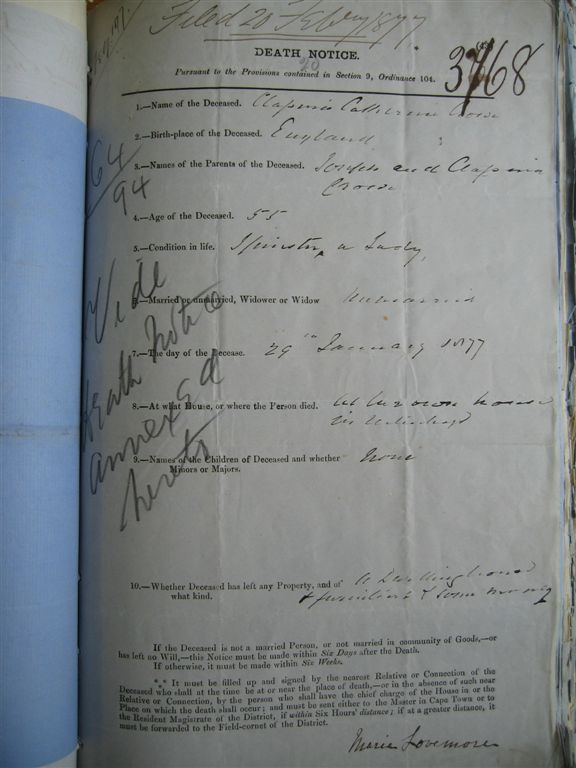 Filed 20 Febry 1877.
3768
DEATH NOTICE.
20
Pursuant to the Provisions contained in Section 9, Ordinance 104.
1.—Name of the Deceased. Clapenia Catherine Crowe
2.—Birth-place of the Deceased. England
3.—Names of the Parents of the Deceased. Joseph and Clapenia
Crowe
64
94
4.—Age of the Deceased. 55
5.—Condition in life. Spinster, a Lady,
6.—Married or unmarried, Widower or Widow Unmarried
7.—The day of the Decease. 29th January 1877
8.—At what House, or where the Person died. At her own house
in Uitenhage
9.—Names of the Children of Deceased and whether None
Minors or Majors.
Vide
Death Notice
annexed
hereto
10.—Whether Deceased has left any Property, and of A Dwelling house
what kind. & furniture & some money
If the Deceased is not a married Person, or not married in community of Goods,—or
has left no Will,—this Notice must be made within Six Days after the Death.
If otherwise, it must be made within Six Weeks.
*** It must be filled up and signed by the nearest Relative or Connection of the
Deceased who shall at the time be at or near the place of death,—or in the absence of such near
Relative or Connection, by the person who shall have the chief charge of the House in or the
Place on which the death shall occur; and must be sent either to the Master in Cape Town or to
the Resident Magistrate of the District, if within Six Hours' distance; if at a greater distance, it
must be forwarded to the Field-cornet of the District.
Maria Lovemore